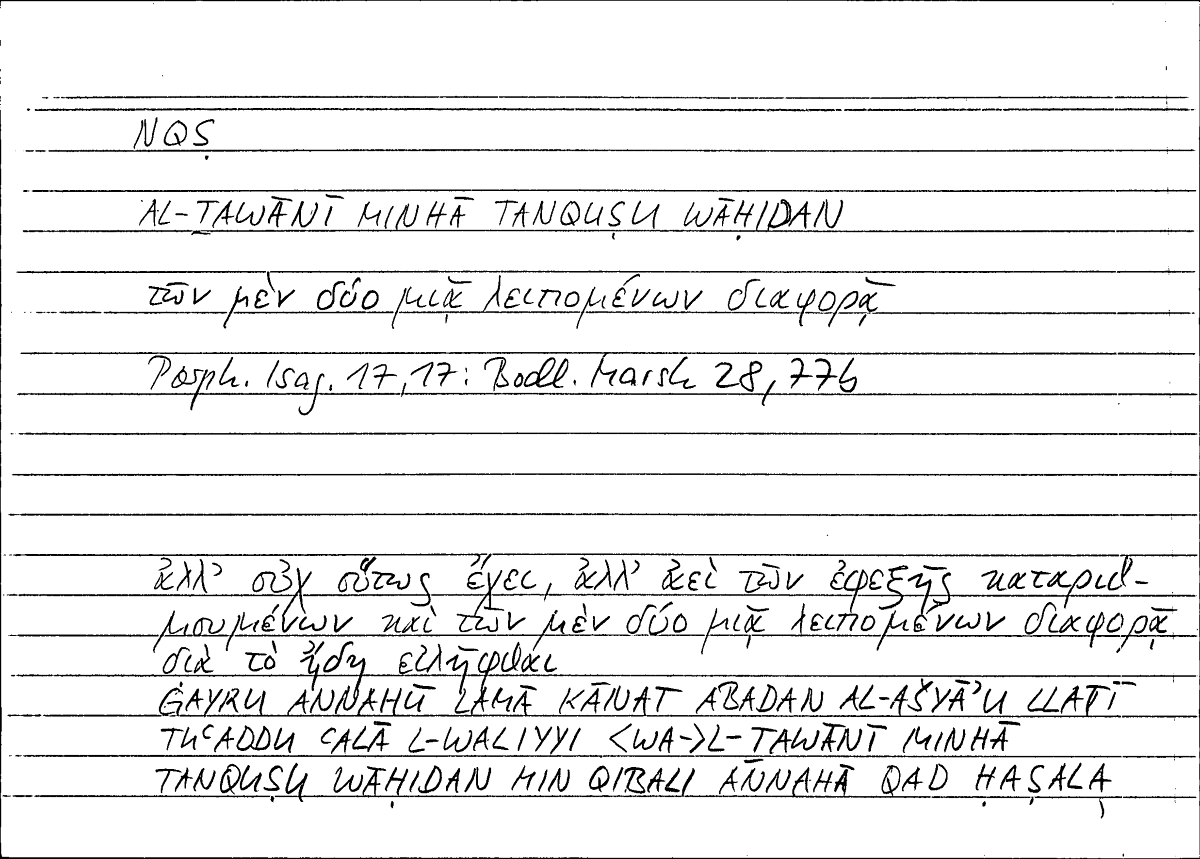 NQṢ
AL-ṮAWĀNĪ MINHĀ TANQUṢU WĀḤIDAN
τῶν μὲν δύο μιᾷ λειπομένων διαφορᾷ
Porph. Isag. 17,17: Bodl. Marsh 28,77b
ἀλλ' οὐχ οὕτως ἔχει, ἀλλ' ἀεὶ τῶν ἐφεξῆς καταριθ-
μουμένων καὶ τῶν μὲν δύο μιᾷ λειπομένων διαφορᾷ
διὰ τὸ ἤδη εἰλῆφθαι
ĠAYRU ANNAHŪ LAMĀ KĀNAT ABADAN AL-AŠYĀʾU LLATĪ
TUʿADDU ʿALĀ L-WALIYYI <WA->L-TAWĀNĪ MINHĀ
TANQUṢU WĀḤIDAN MIN QIBALI ANNAHĀ QAD ḤAṢALA